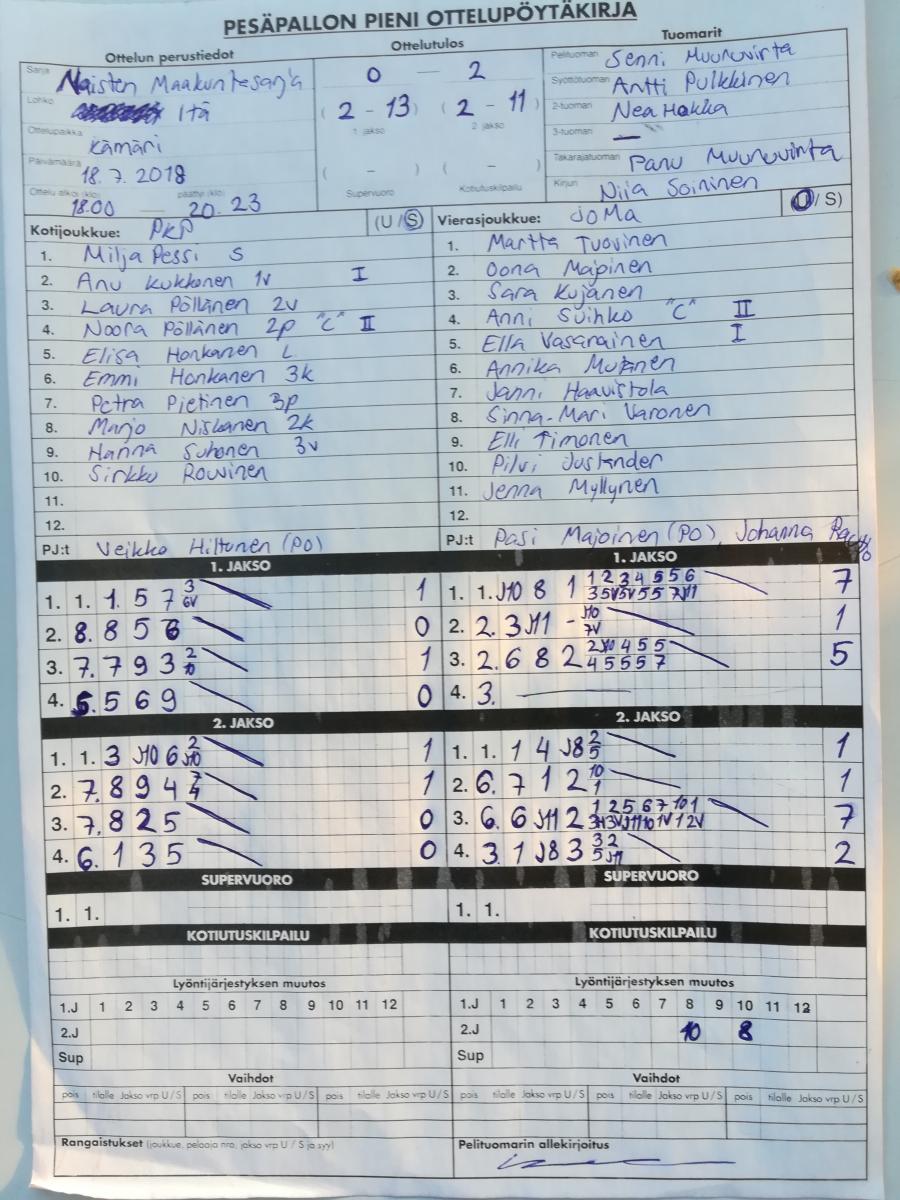 PESÄPALLON PIENI OTTELUPÖYTÄKIRJA
Ottelun perustiedot Ottelutulos Tuomarit
Sarja Naisten Maakuntasarja
Lohko Itä
Ottelupaikka Kämäri
Päivämäärä 18.7.2018
Ottelu alkoi (klo) 18.00 — päättyi (klo) 20.23
0 — 2
( 2 - 13 ) ( 2 - 11 )
1 jakso 2 jakso
( - ) ( - )
Supervuoro Kotiutuskilpailu
Pelituomari Senni Muuruvirta
Syöttötuomari Antti Pulkkinen
2-tuomari Nea Hakka
3-tuomari —
Takarajatuomari Panu Muuruvirta
Kirjuri Niia Soininen
Kotijoukkue: PKP (U/S)
1. Milja Pessi S
2. Anu Kukkonen 1v I
3. Laura Pöllänen 2v
4. Noora Pöllänen 2p "C" II
5. Elisa Honkanen L
6. Emmi Honkanen 3k
7. Petra Pietinen 3p
8. Marjo Niskanen 2k
9. Hanna Suhonen 3v
10. Sirkku Rouvinen
11.
12.
PJ:t Veikko Hiltunen (PO)
Vierasjoukkue: JoMa (U/S)
1. Martta Tuovinen
2. Oona Majoinen
3. Sara Kujanen
4. Anni Suihko "C" II
5. Ella Vasarainen I
6. Annika Mujunen
7. Janni Haavistola
8. Sinna-Mari Varonen
9. Elli Timonen
10. Pilvi Juslander
11. Jenna Myllynen
12.
PJ:t Pasi Majoinen (PO), Johanna
1. JAKSO
1. 1. 1 5 7 3 6V 1
2. 8. 8 5 6 0
3. 7. 7 9 3 2 10 1
4. 5. 5 6 9 0
2. JAKSO
1. 1. 3 J10 6 2 J10 1
2. 7. 8 9 4 7 4 1
3. 7. 8 2 5 0
4. 6. 1 3 5 0
SUPERVUORO
1. 1.
KOTIUTUSKILPAILU
1. JAKSO
1. 1. J10 8 1 1 2 3 4 5 5 6 7
3 5V 5V 5 5 7V J11
2. 2. 3 J11 - J10 7V 1
3. 2. 6 8 2 2 J10 4 5 5 5
4 5 5 5 7
4. 3. —
2. JAKSO
1. 1. 1 4 J8 2 5 1
2. 6. 7 1 2 10 1 1
3. 6. 6 J11 2 1 2 5 6 7 10 1 7
4. 3. 1 J8 3 3 2 2
5 J11
SUPERVUORO
1. 1.
KOTIUTUSKILPAILU
Lyöntijärjestyksen muutos
1.J 1 2 3 4 5 6 7 8 9 10 11 12
2.J
Sup
Lyöntijärjestyksen muutos
1.J 1 2 3 4 5 6 7 8 9 10 11 12
2.J 10 8
Sup
Vaihdot
pois tilalle Jakso vrp U / S pois tilalle Jakso vrp U / S pois tilalle Jakso vrp U / S
Vaihdot
pois tilalle Jakso vrp U / S pois tilalle Jakso vrp U / S pois tilalle Jakso vrp U / S
Rangaistukset (joukkue, pelaaja nro, jakso vrp U / S ja syy)
Pelituomarin allekirjoitus